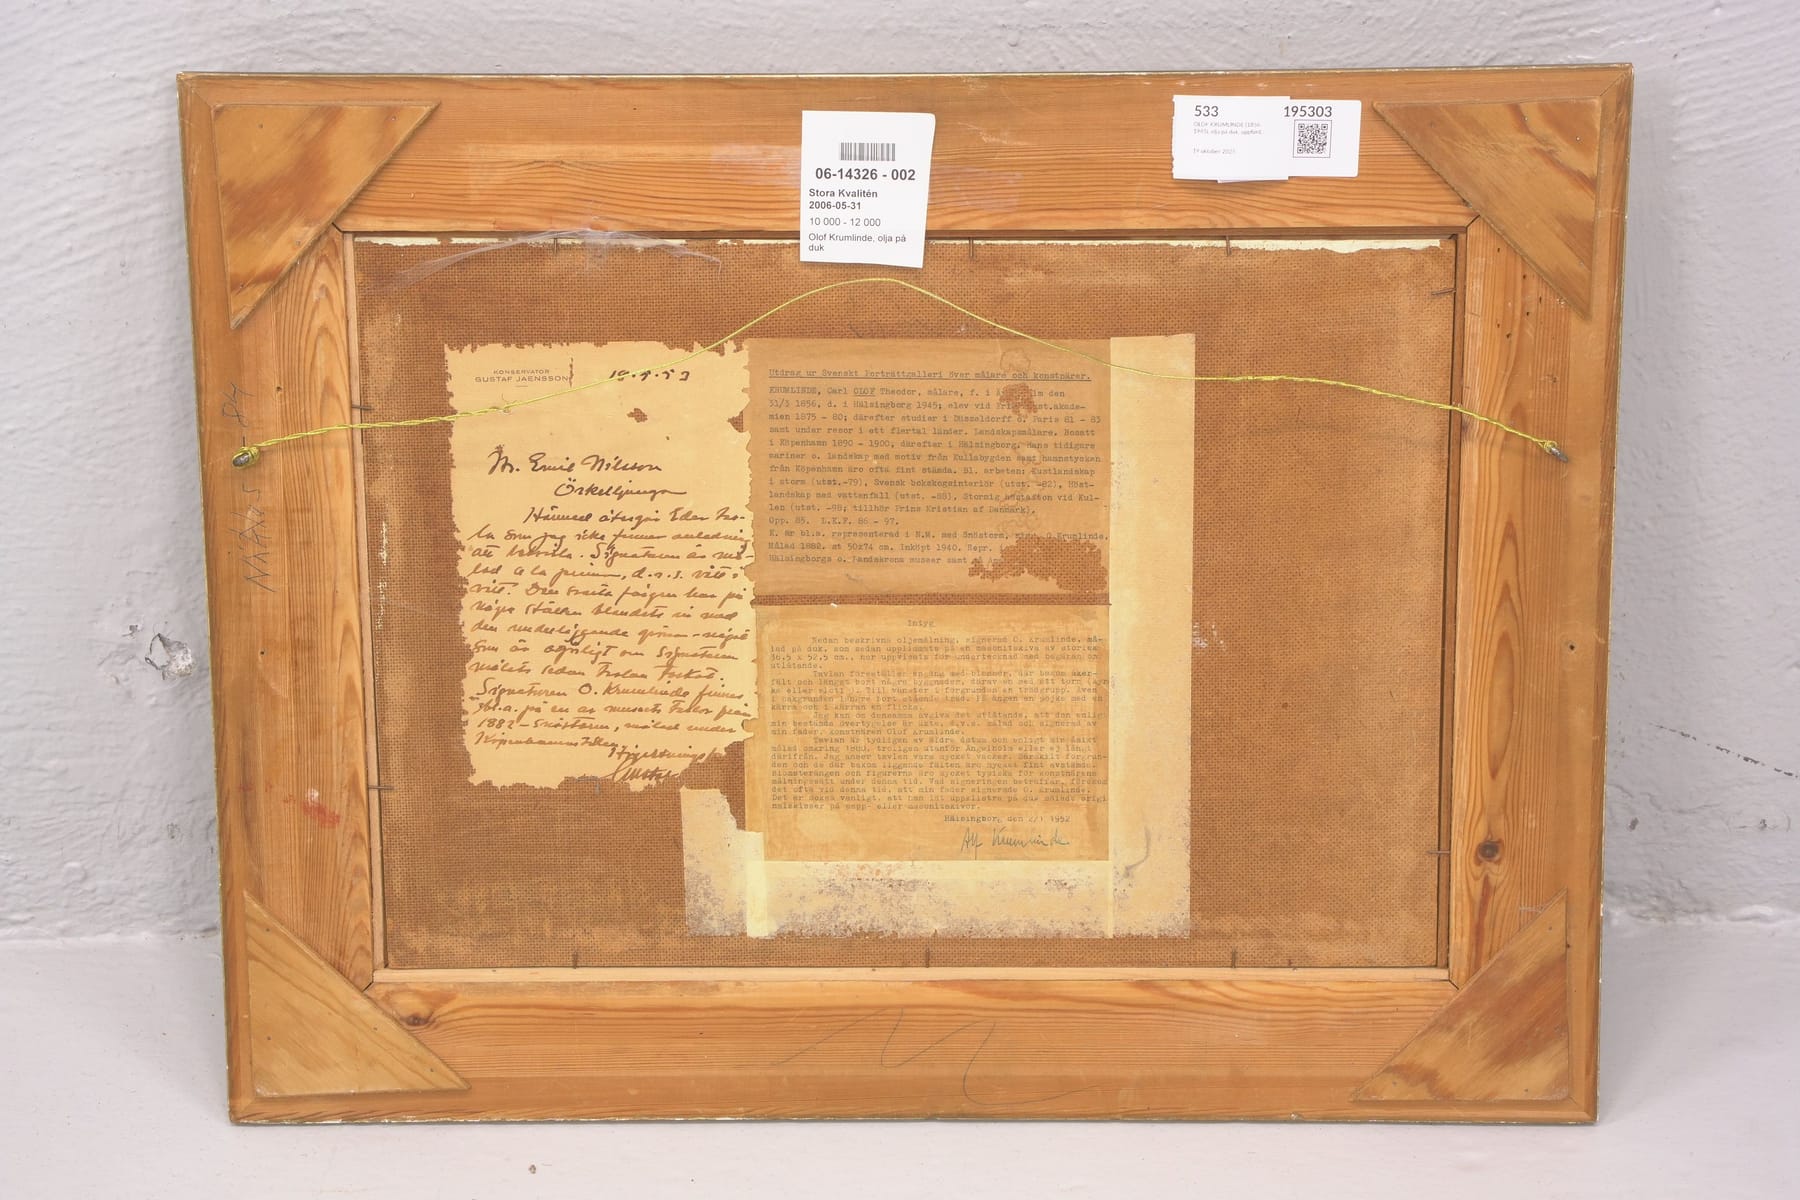 533
195303
OLOF KRUMLINDE (1856-
1945), olja på duk, uppfodrad,
19 oktober 2025
06-14326 - 002
Stora Kvalitén
2006-05-31
10 000 - 12 000
Olof Krumlinde, olja på
duk
KONSERVATOR
GUSTAF JAENSSON
Hr. Emil Nilsson
Örkelljunga
Härmed återgår Eder tav-
la som jag icke finner anledning
att . Signaturen är må-
lad a la prima, d.v.s. vått i
vått. Den svarta färgen har på
några ställen blandats in med
den underliggande gröna - något
som är omöjligt om signaturen
målats sedan tavlan torkat.
Signaturen O. Krumlinde finnes
bl.a. på en av museets tavlor från
1882 - Snöstorm, målad under
Köpenhamns
Högaktningsf
Utdrag ur Svenskt Porträttgalleri över målare och konstnärer.
KRUMLINDE, Carl OLOF Theodor, målare, f. i den
31/3 1856, d. i Hälsingborg 1945; elev vid konst.akade-
mien 1875 - 80; därefter studier i Düsseldorff o. Paris 81 - 83
samt under resor i ett flertal länder. Landskapsmålare. Bosatt
i Köpenhamn 1890 - 1900, därefter i Hälsingborg. Hans tidigare
mariner o. landskap med motiv från Kullabygden samt hamnstycken
från Köpenhamn äro ofta fint stämda. Bl. arbeten: Kustlandskap
i storm (utst.-79), Svensk bokskogsinteriör (utst. -82), Höst-
landskap med vattenfall (utst. -88), Stormig höstafton vid Kul-
len (utst. -98; tillhör Prins Kristian af Danmark).
Opp. 85. L.K.F. 86 - 97.
K. är bl.a. representerad i N.M. med Snöstorm, O Krumlinde.
Målad 1882. st 50x74 cm. Inköpt 1940. Repr.
Hälsingborgs o. Landskrona museer samt
Intyg
Nedan beskrivna oljemålning, signerad O. Krumlinde, må-
lad på duk, som sedan uppklistrats på en masonitskiva av storlek
36,5 x 52,5 cm., har uppvisats för undertecknad med begäran om
utlåtande.
Tavlan föreställer en äng med blommor, där bakom åker-
fält och längst bort några byggnader, därav en med ett torn
ka eller slott). Till vänster i förgrunden en trädgrupp. Även
i bakgrunden några fort gående träd. På ängen en pojke med en
kärra och i kärran en flicka.
Jag kan om densamma avgiva det utlåtande, att den enligt
min bestämda övertygelse är äkta, d.v.s. målad och signerad av
min fader, konstnären Olof Krumlinde.
Tavlan är tydligen av äldre datum och enligt min åsikt
målad omkring 1880, troligen utanför Ängelholm eller ej långt
därifrån. Jag anser tavlan vara mycket vacker. Särskilt förgrun-
den och de där bakom liggande fälten äro mycket fint avstämda.
Blomsterängen och figurerna äro mycket typiska för konstnärens
målningssätt under denna tid. Vad signeringen beträffar, förekom
det ofta vid denna tid, att min fader signerade O. Krumlinde.
Det är också vanligt, att han lät uppklistra på duk målade origi
nalskisser på papp- eller masonitskivor.
Hälsingborg den 2/1 1952
Alf Krumlinde